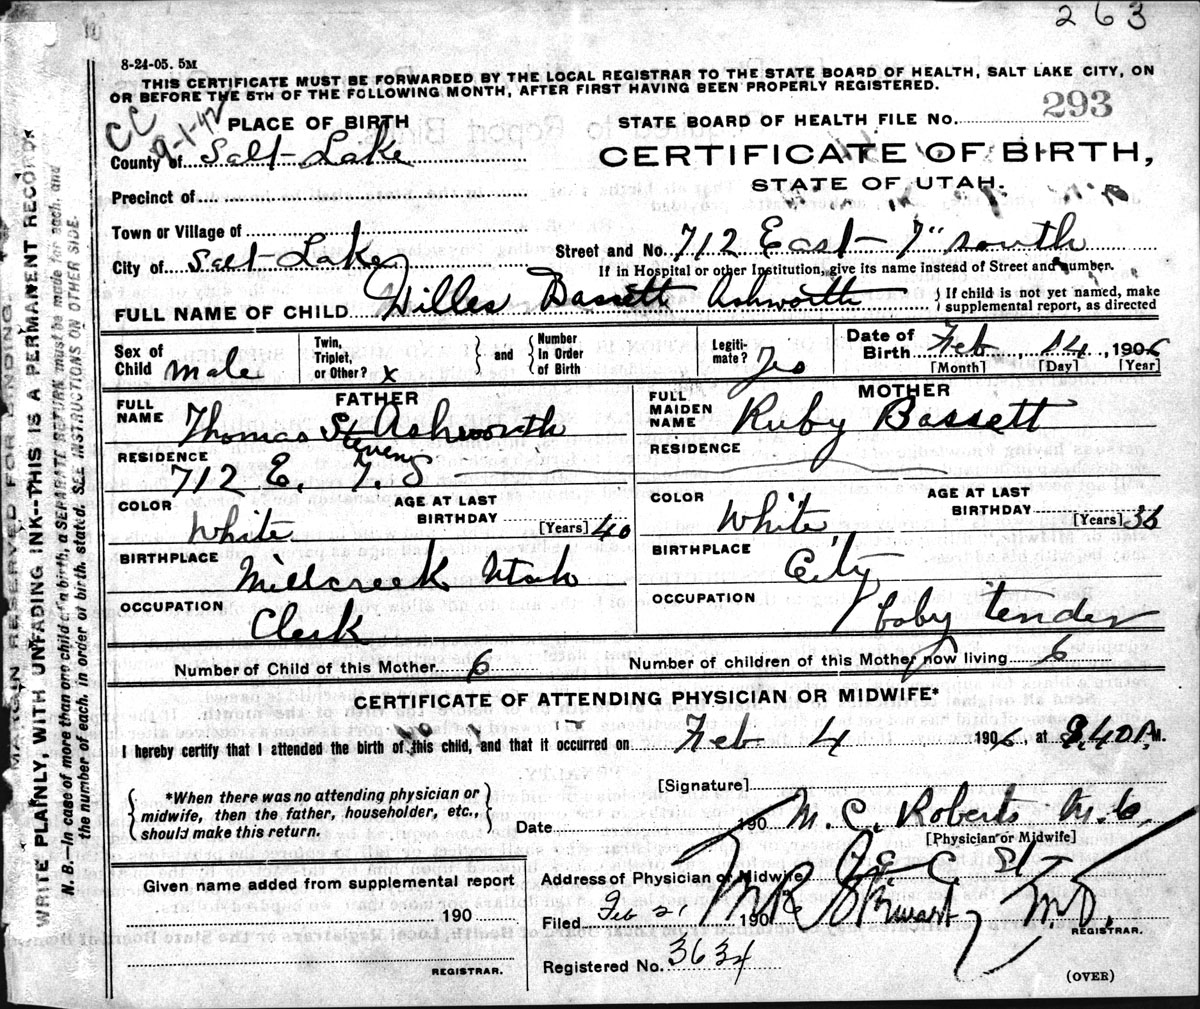 263
8-24-05. 5M
THIS CERTIFICATE MUST BE FORWARDED BY THE LOCAL REGISTRAR TO THE STATE BOARD OF HEALTH, SALT LAKE CITY, ON
OR BEFORE THE 5TH OF THE FOLLOWING MONTH, AFTER FIRST HAVING BEEN PROPERLY REGISTERED.
CC
9-1-42
PLACE OF BIRTH
STATE BOARD OF HEALTH FILE No. 293
County of Salt-Lake
CERTIFICATE OF BIRTH,
STATE OF UTAH.
Precinct of
Town or Village of
Street and No. 712 East- 7" south
City of Salt-Lake
If in Hospital or other Institution, give its name instead of Street and number.
FULL NAME OF CHILD Willes Bassett Ashworth
If child is not yet named, make
supplemental report, as directed
Sex of Child male
Twin, Triplet, or Other? x
and
Number In Order of Birth
Legiti- mate? Yes
Date of Birth Feb 14, 1906
[Month] [Day] [Year]
FATHER
FULL NAME Thomas St Ashworth
Stevens
MOTHER
FULL MAIDEN NAME Ruby Bassett
RESIDENCE 712 E 7. S
RESIDENCE
COLOR White
AGE AT LAST BIRTHDAY [Years] 40
COLOR White
AGE AT LAST BIRTHDAY [Years] 36
BIRTHPLACE Millcreek Utah
BIRTHPLACE City
OCCUPATION Clerk
OCCUPATION baby tender
Number of Child of this Mother 6
Number of children of this Mother now living 6
CERTIFICATE OF ATTENDING PHYSICIAN OR MIDWIFE*
I hereby certify that I attended the birth of this child, and that it occurred on Feb 4 1906, at 8.40 A M.
*When there was no attending physician or
midwife, then the father, householder, etc.,
should make this return.
[Signature]
M. C. Roberts
Date 190
[Physician or Midwife]
Address of Physician or Midwife
Given name added from supplemental report
190
REGISTRAR.
Filed Feb 21 190
M.D.
REGISTRAR.
Registered No. 3634
(OVER)
MARGIN RESERVED FOR BINDING
WRITE PLAINLY, WITH UNFADING INK—THIS IS A PERMANENT RECORD.
N.B.—In case of more than one child at a birth, a SEPARATE RETURN must be made for each, and
the number of each, in order of birth, stated. SEE INSTRUCTIONS ON OTHER SIDE.